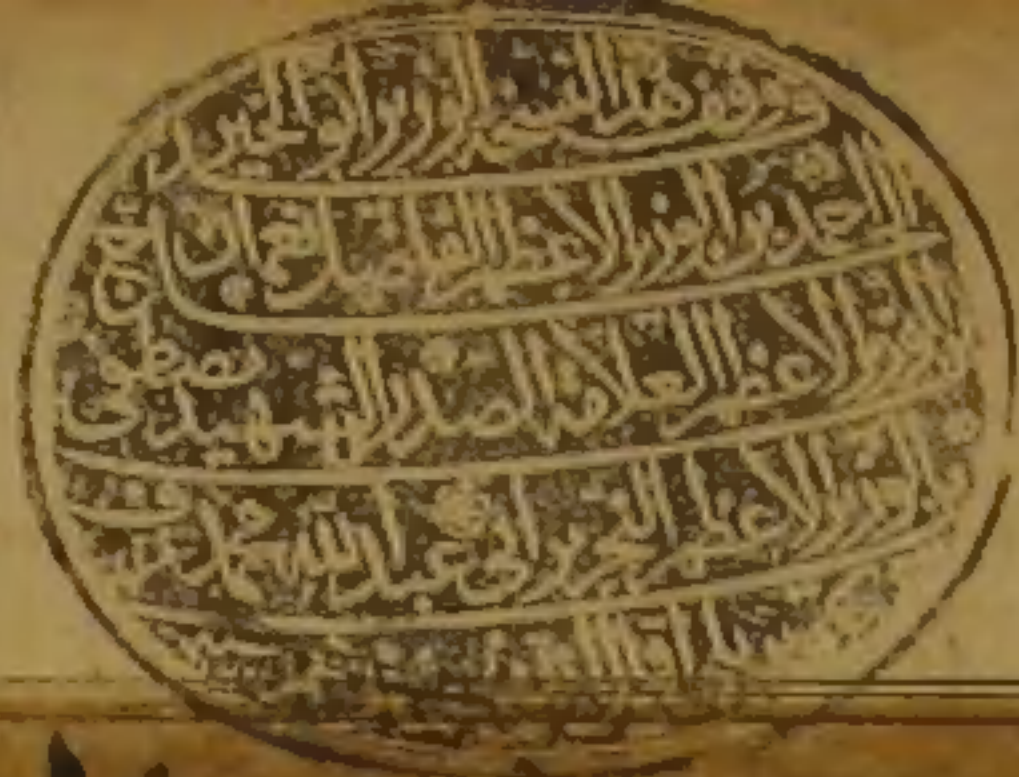 وقف هذه النسخة الوزير ابو الخير
الحاج احمد بن الوزير الاعظم الفاضل نعمان
بن الوزير الاعظم العلامة الصدر الشهيد مصطفى
بن الوزير الاعظم النحرير ابى عبد الله محمد عرف
اقال الله